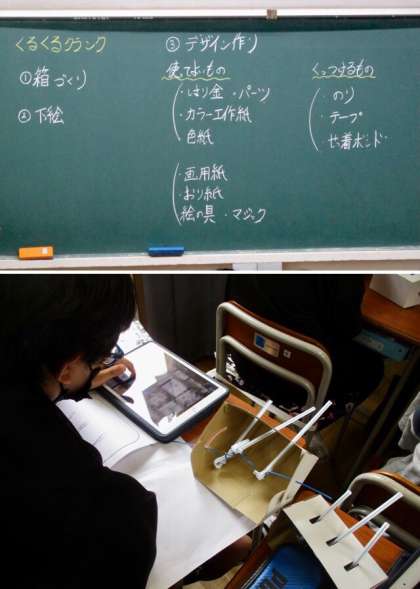 くるくるクランク
①箱づくり
②下絵
③デザイン作り
使ってよいもの
・はり金 ・パーツ
・カラー工作紙
色紙
・画用紙
・おり紙
絵の具・マジック
くっつけるもの
・のり
・テープ
・せっ着ボンド